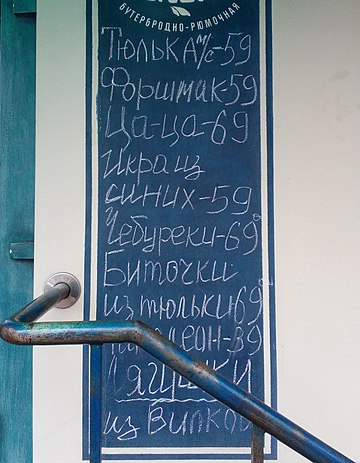 БУТЕРБРОДНО-РЮМОЧНАЯ
Тюлька м/с-59
Форшмак-59
Ца-ца-69
Икра из
синих-59
Чебуреки-69
Биточки
из тюльки 69
леон-39
Лягушки
из Вилково